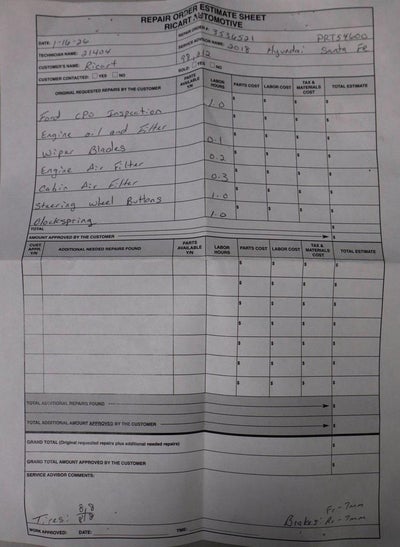 REPAIR ORDER ESTIMATE SHEET
RICART AUTOMOTIVE
DATE: 1-16-26
REPAIR ORDER #: 3536521
PRTS4600
TECHNICIAN NAME: 21404
SERVICE ADVISOR NAME: 2018 Hyundai Santa Fe
CUSTOMER'S NAME: Ricart
98,212
CUSTOMER CONTACTED: YES NO
SOLD: YES NO
ORIGINAL REQUESTED REPAIRS BY THE CUSTOMER PARTS AVAILABLE Y/N LABOR HOURS PARTS COST LABOR COST TAX & MATERIALS COST TOTAL ESTIMATE
Ford CPO Inspection 1.0 $ $ $ $
Engine oil and Filter $ $ $ $
Wiper Blades 0.1 $ $ $ $
Engine Air Filter 0.2 $ $ $ $
Cabin Air Filter 0.3 $ $ $ $
Steering Wheel Buttons 1.0 $ $ $ $
Clockspring 1.0 $ $ $ $
TOTAL
AMOUNT APPROVED BY THE CUSTOMER $
CUST. APPR. Y/N ADDITIONAL NEEDED REPAIRS FOUND PARTS AVAILABLE Y/N LABOR HOURS PARTS COST LABOR COST TAX & MATERIALS COST TOTAL ESTIMATE
$ $ $ $
$ $ $ $
$ $ $ $
$ $ $ $
$ $ $ $
$ $ $ $
$ $ $ $
TOTAL ADDITIONAL REPAIRS FOUND $
TOTAL ADDITIONAL AMOUNT APPROVED BY THE CUSTOMER $
GRAND TOTAL (Original requested repairs plus additional needed repairs) $
GRAND TOTAL AMOUNT APPROVED BY THE CUSTOMER $
SERVICE ADVISOR COMMENTS:
Tires: 8 8
8 8
Fr-7mm
Brakes: Rr-7mm
WORK APPROVED: DATE: TIME: